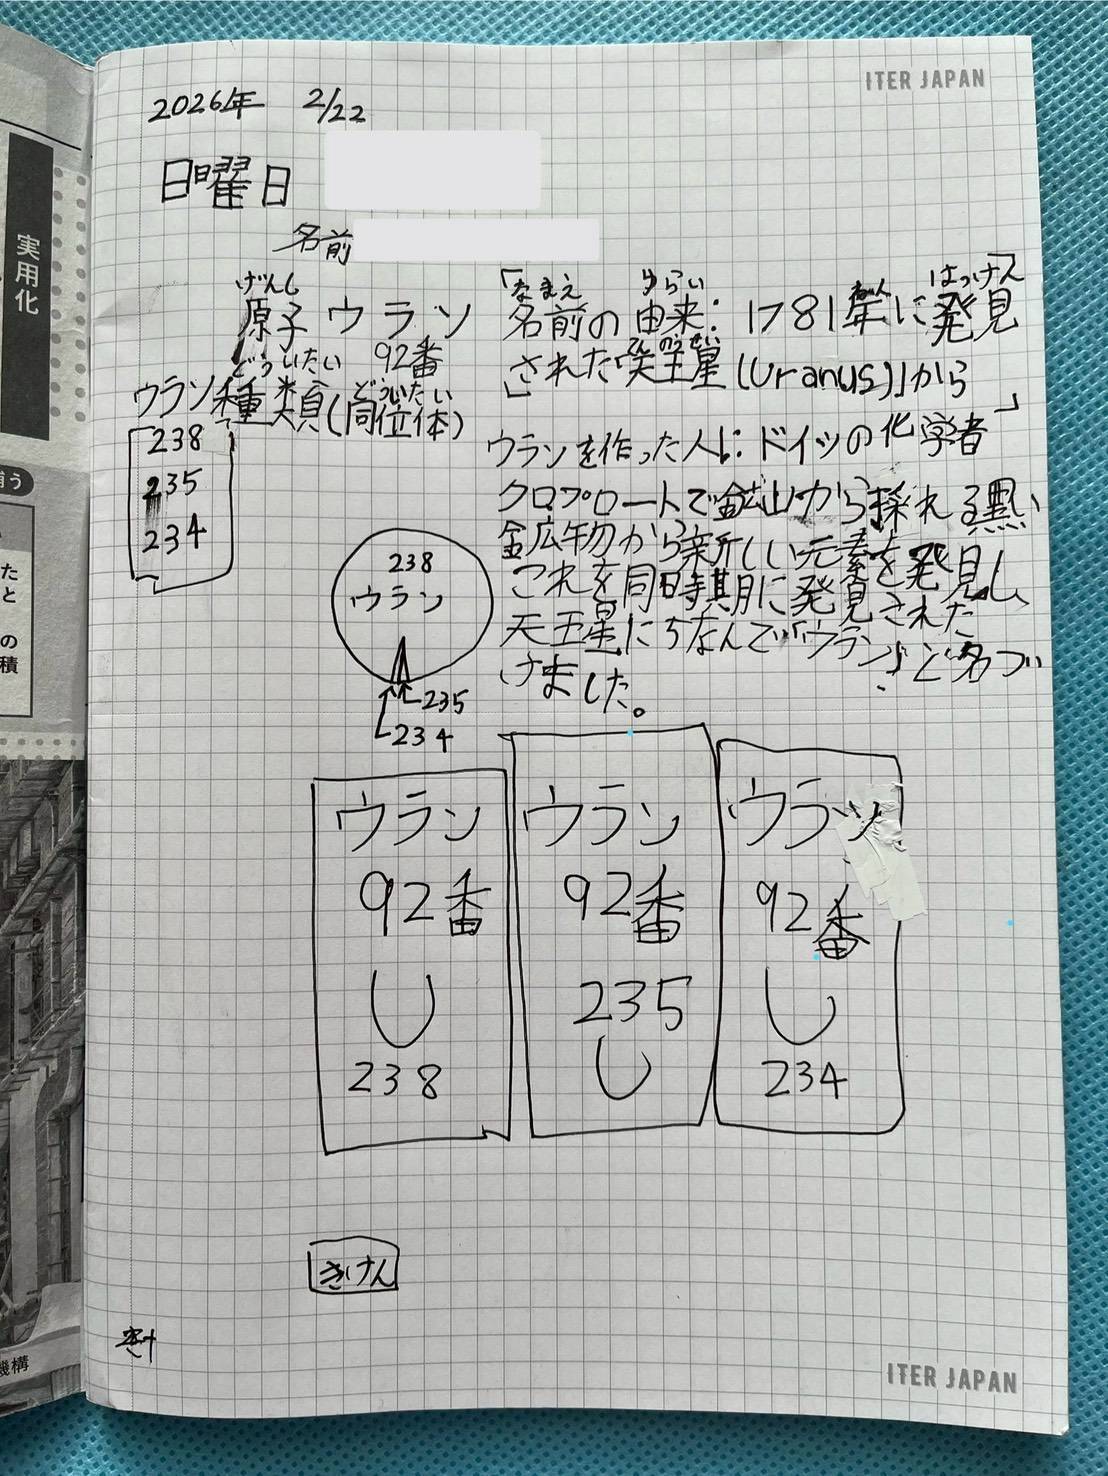 ITER JAPAN
2026年 2/22
日曜日
名前
げんし
原子 ウラン
92番
どういたい
ウラン種類(同位体)
どういたい
238
235
234
238
ウラン
235
234
「なまえ ゆらい ねん はっけん
名前の由来:1781年に発見
てんのうせい
された「天王星(Uranus)」から」
ウランを作った人は:ドイツの化学者
クロプロートで鉱山から採れる黒い
鉱物から新しい元素を発見し、
これを同時期に発見された
天王星にちなんで「ウラン」と名づ
けました。
ウラン
92番
U
238
ウラン
92番
235
U
ウラン
92番
U
234
きけん
ITER JAPAN
実用化
補う
た
と
の
積
機構